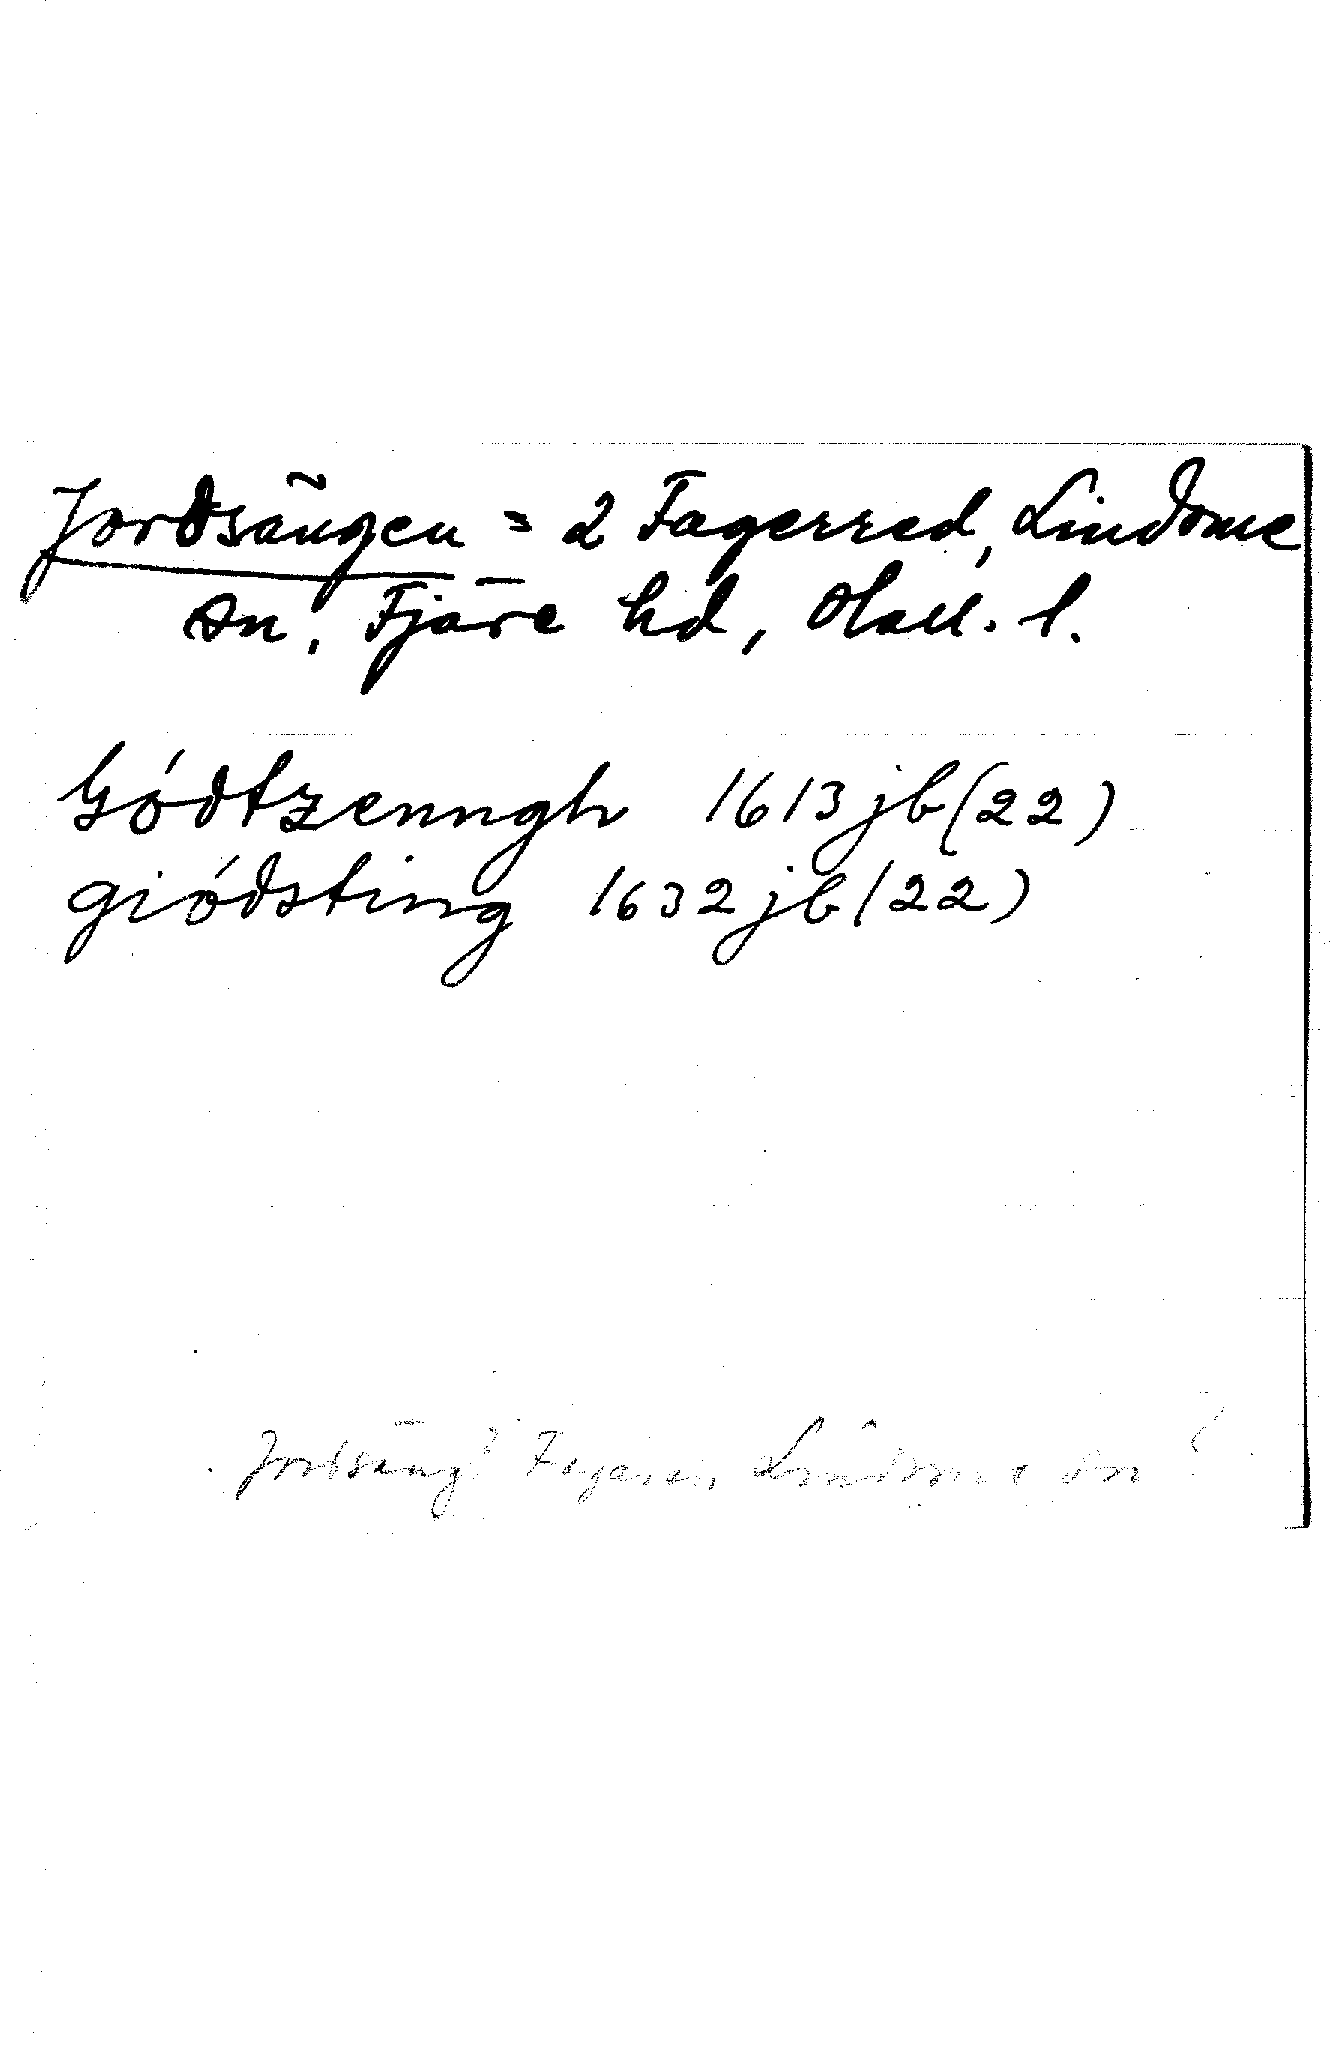 Jordsängen = 2 Fagerred, Lindome
sn, Fjäre hd, Hall. l.
Gódtzenngh 1613 jb (22)
gióðsting 1632 jb (22)
Jordsäng? Lindome sn